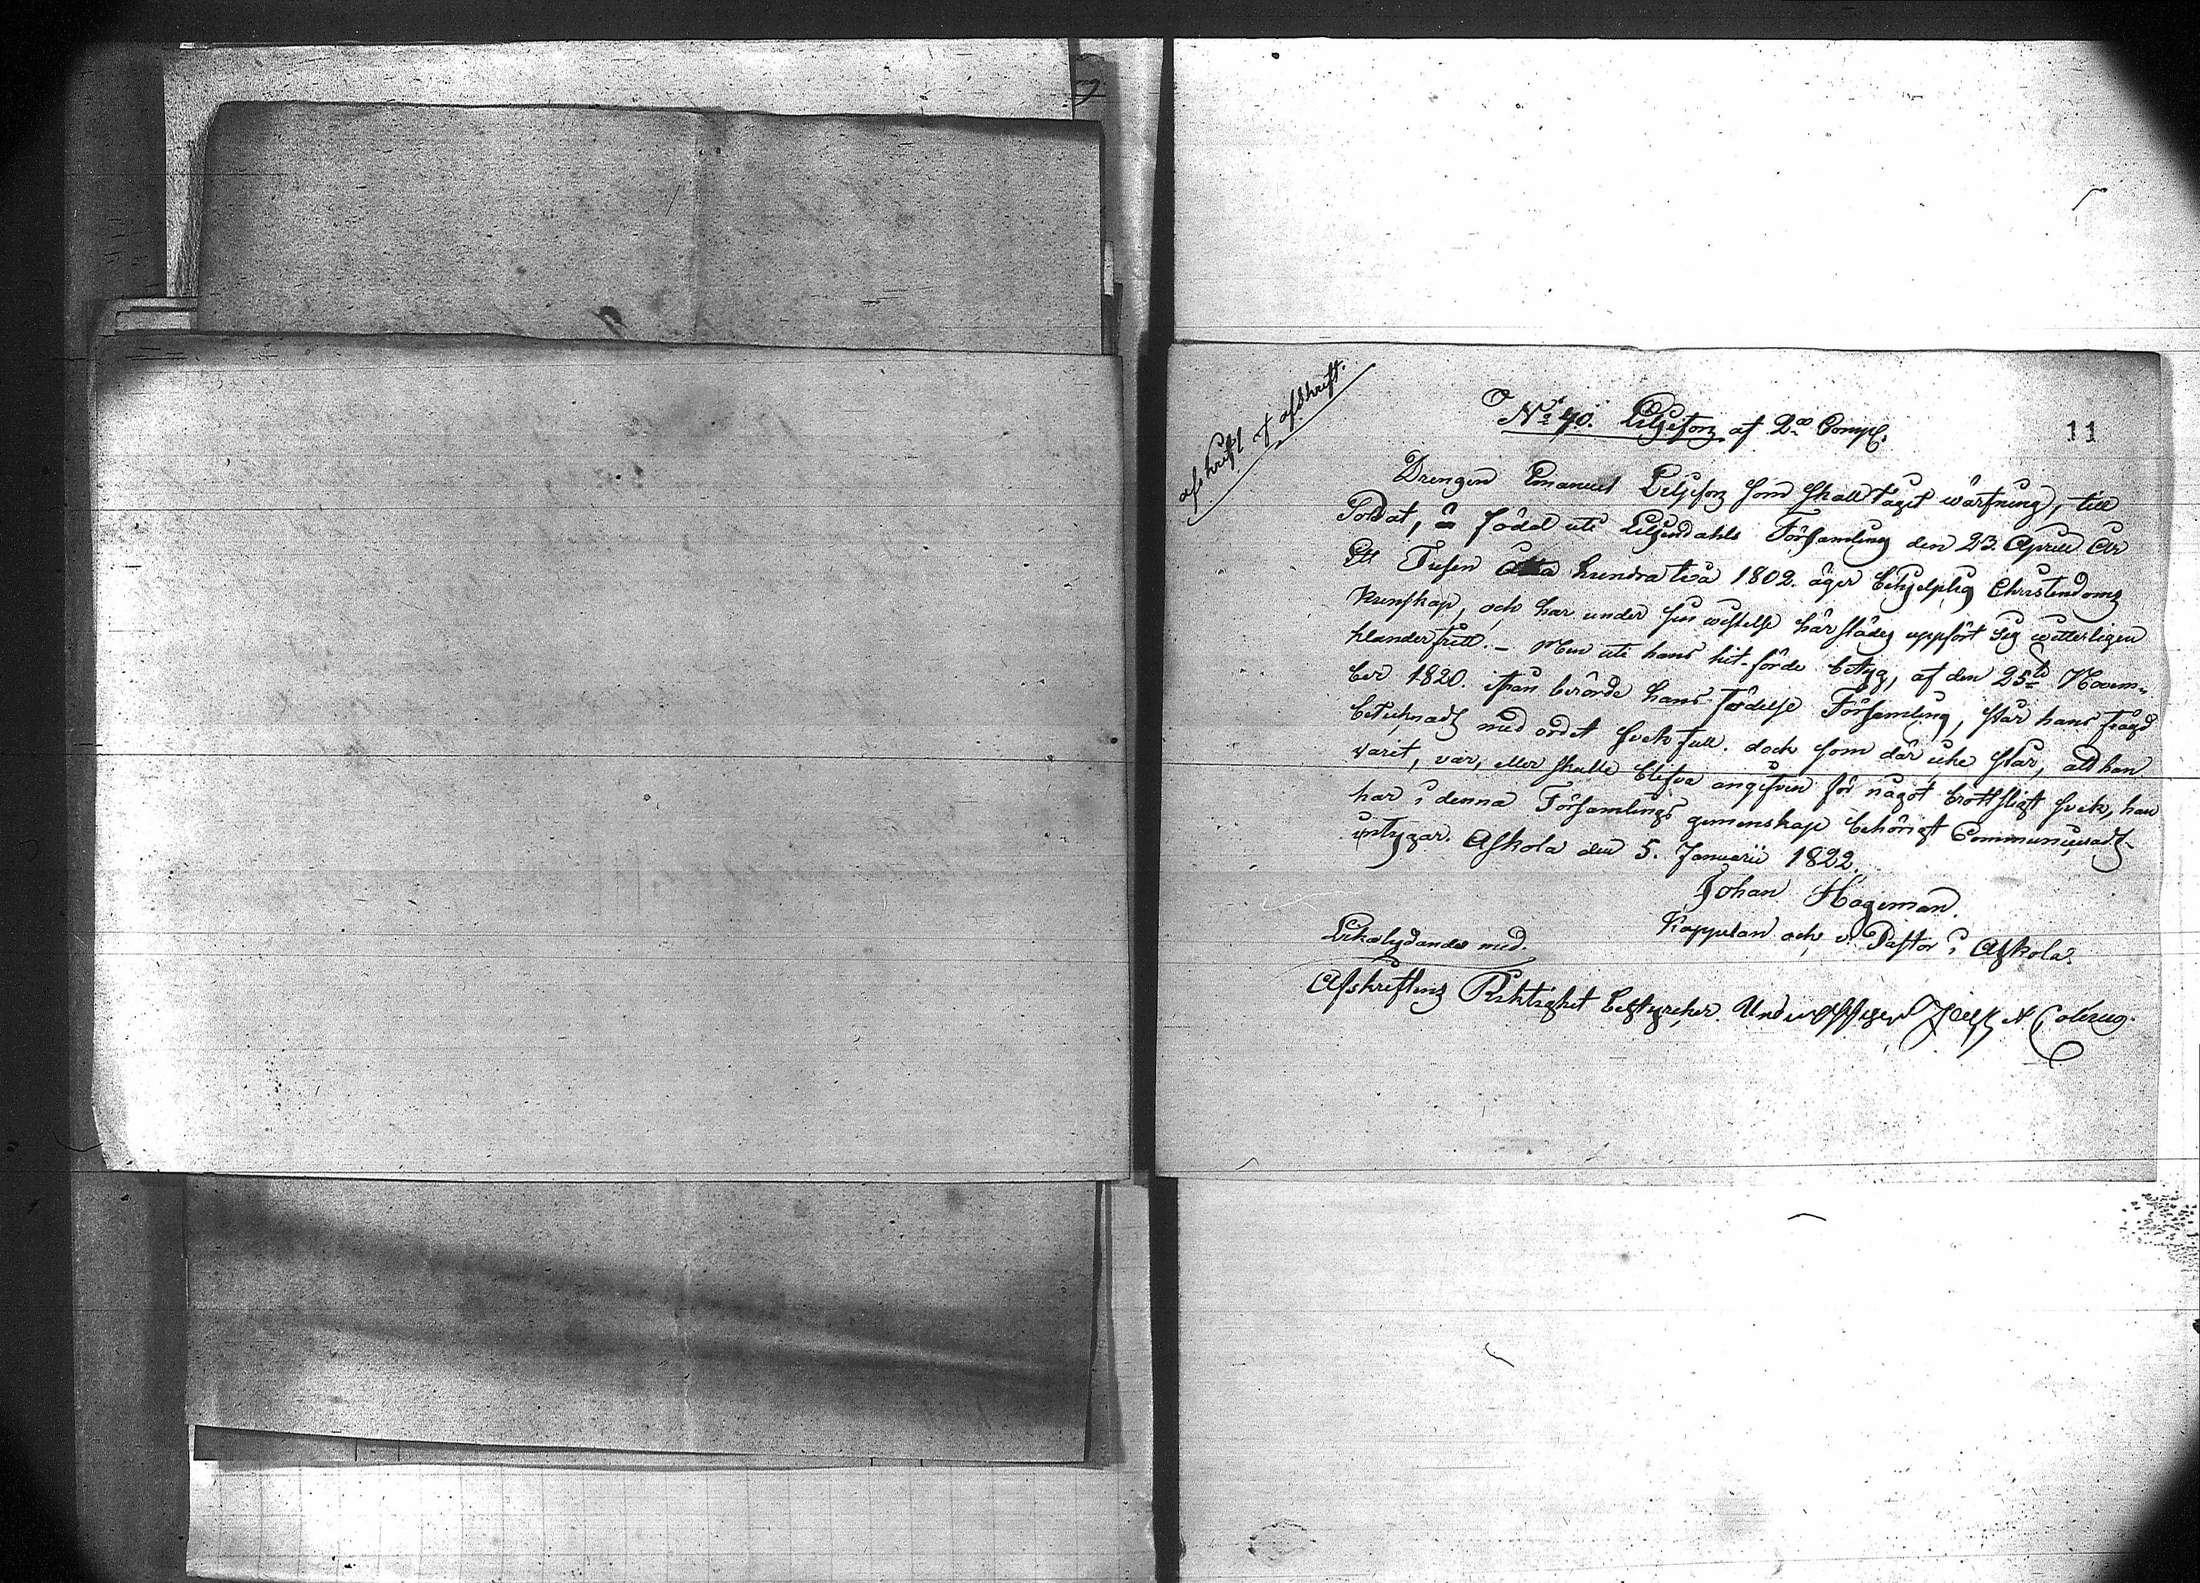 afskrift af afskrift.
11
No 40. Liljefors af 2a Comp.
Drengen Emanuel Liljefors som skall tagit wärfning, till
Soldat, är född uti Liljendahls Församling den 23 Aprill År
Ett Tusen Åtta hundra två 1802. äger behjelplig Christendoms
kunskap, och har under sin wistelse härstädes uppfört sig wetterligen
klanderfritt. – Men uti hans hit-förde betyg, af den 25te Novem-
ber 1820. ifrån berörde hans födelse Församling, står hans frägd
betecknadt med ordet svekfull. dock som där icke står, att han
varit, var, eller skulle blifva angifven för något brottsligt svek, han
har i denna Församlings gemenskap behörigt Communicerat.
intygar. Askola den 5. Januarii 1822.
Johan Hageman.
Kappelan och v. Pastor i Askola.
Lika lydande med.
Afskriftens Riktighet bestyrcker.